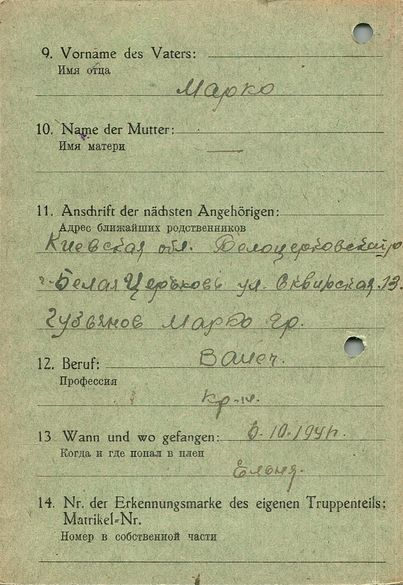 9. Vorname des Vaters:
Имя отца
Марко
10. Name der Mutter:
Имя матери
—
11. Anschrift der nächsten Angehörigen:
Адрес ближайших родственников
Киевская обл. Белоцерковский р
г. Белая Церьковь ул. Сквирская. 13.
Марко гр.
12. Beruf:
Профессия
кр-н.
13 Wann und wo gefangen: 6-10-1941г.
Когда и где попал в плен
Ельня.
14. Nr. der Erkennungsmarke des eigenen Truppenteils:
Matrikel-Nr.
Номер в собственной части